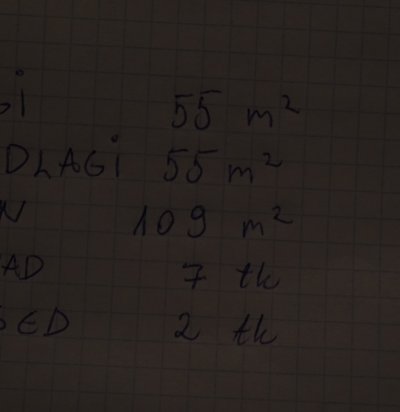 GI 55 m²
DLAGI 55 m²
N 109 m²
AD 7 tk
SED 2 tk